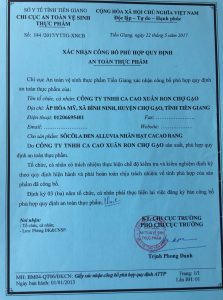 SỞ Y TẾ TỈNH TIỀN GIANG
CHI CỤC AN TOÀN VỆ SINH
THỰC PHẨM
CỘNG HÒA XÃ HỘI CHỦ NGHĨA VIỆT NAM
Độc lập - Tự do - Hạnh phúc
Số: 184/2017/YTTG-XNCB
Tiền Giang, ngày 22 tháng 5 năm 2017
XÁC NHẬN CÔNG BỐ PHÙ HỢP QUY ĐỊNH
AN TOÀN THỰC PHẨM
Chi cục An toàn vệ sinh thực phẩm Tiền Giang xác nhận công bố phù hợp quy định
an toàn thực phẩm của:
Tên tổ chức, cá nhân: CÔNG TY TNHH CA CAO XUÂN RON CHỢ GẠO
Địa chỉ: ẤP HÒA MỸ, XÃ BÌNH NINH, HUYỆN CHỢ GẠO, TỈNH TIỀN GIANG
Điện thoại: 01206695401 Fax:
Email: Website:
Cho sản phẩm: SÔCÔLA ĐEN ALLUVIA NHÂN HẠT CACAO RANG
Do CÔNG TY TNHH CA CAO XUÂN RON CHỢ GẠO sản xuất, phù hợp quy
định an toàn thực phẩm.
Tổ chức, cá nhân có trách nhiệm thực hiện chế độ kiểm tra và kiểm nghiệm định kỳ
theo quy định hiện hành và phải hoàn toàn chịu trách nhiệm về tính phù hợp của sản
phẩm đã công bố.
Định kỳ 03 (ba) năm tổ chức, cá nhân phải thực hiện lại việc đăng ký bản công bố
phù hợp quy định an toàn thực phẩm.
Nơi nhận:
- Tổ chức, cá nhân;
- Lưu Phòng ĐK&CNSP.
KT. CHI CỤC TRƯỞNG
PHÓ CHI CỤC TRƯỞNG
Trịnh Phong Danh
MH: BM04-QT06/ĐKCN: Giấy xác nhận công bố phù hợp quy định ATTP
Ban hành: 01/01/2013
Trang: 1/1
Lần BH: 01